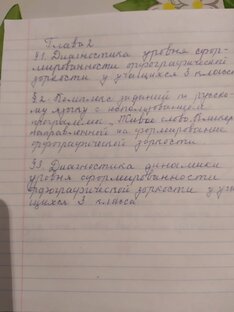 Глава 2
§1. Диагностика уровня сфор-
мированности орфографической
зоркости у учащихся 3 класса
§2. Комплекс заданий по русско-
му языку с использованием
программы „Живое слово"
направленной на формирование
орфографической зоркости.
§3. Диагностика динамики
уровня сформированности
орфографической зоркости у уча-
щихся 3 класса